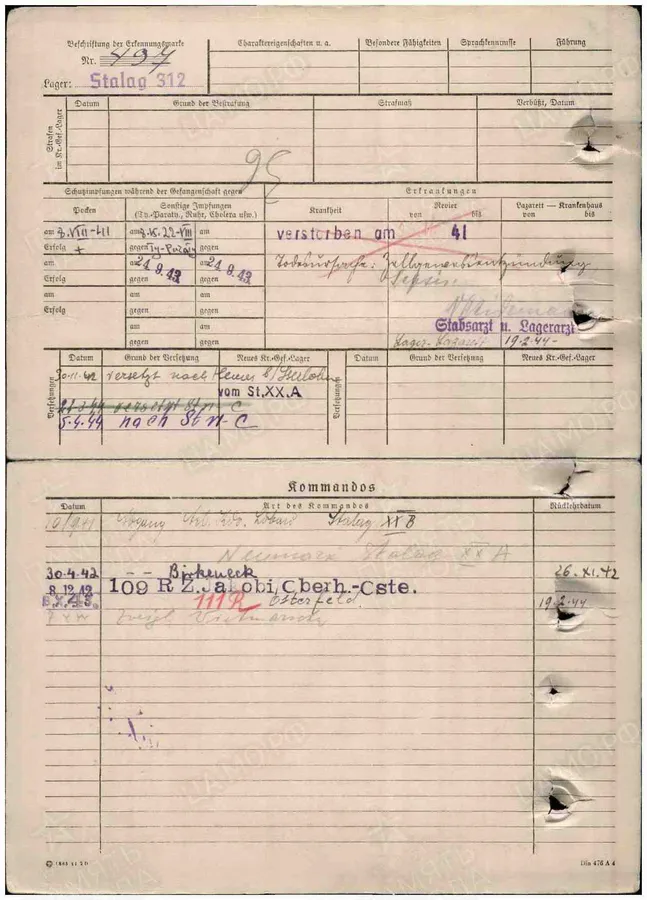 Beschriftung der Erkennungsmarke
Nr. 497
Lager: Stalag 312
Charaktereigenschaften u. a.
Besondere Fähigkeiten
Sprachkenntnisse
Führung
Strafen im Kr.-Gef.-Lager
Datum
Grund der Bestrafung
Strafmaß
Verbüßt, Datum
95
Schutzimpfungen während der Gefangenschaft gegen
Erkrankungen
Pocken
Sonstige Impfungen
(Ty.-Paraty., Ruhr, Cholera usw.)
Krankheit
Revier
von bis
Lazarett — Krankenhaus
von bis
am 8.VIII-41
am 8.15.22-VIII
am
verstorben am 41
Erfolg +
gegen Ty-Paraty
gegen
am
am 24.9.43
am 24.9.43
Todesursache: Zellgewebsentzündung,
Erfolg
gegen
gegen
Sepsis.
am
am
am
Erfolg
gegen
gegen
am
am
Stabsarzt u. Lagerarzt
gegen
gegen
Lager-Lazarett 19.2.44-
Versetzungen
Datum
Grund der Versetzung
Neues Kr.-Gef.-Lager
Versetzungen
Datum
Grund der Versetzung
Neues Kr.-Gef.-Lager
30.11.42 versetzt nach Hemer b/Iserlohn
vom St.XX.A
5.4.44 nach St VI-C
Kommandos
Datum
Art des Kommandos
Rückkehrdatum
Stalag XX B
Neumark Stalag XX A
30.4.42 -- Birkeneck 26.XI.42
8.12.42 109 R Z. Jakobi, Oberh.-Oste.
111R Osterfeld. 19.2.44
Din 476 A 4